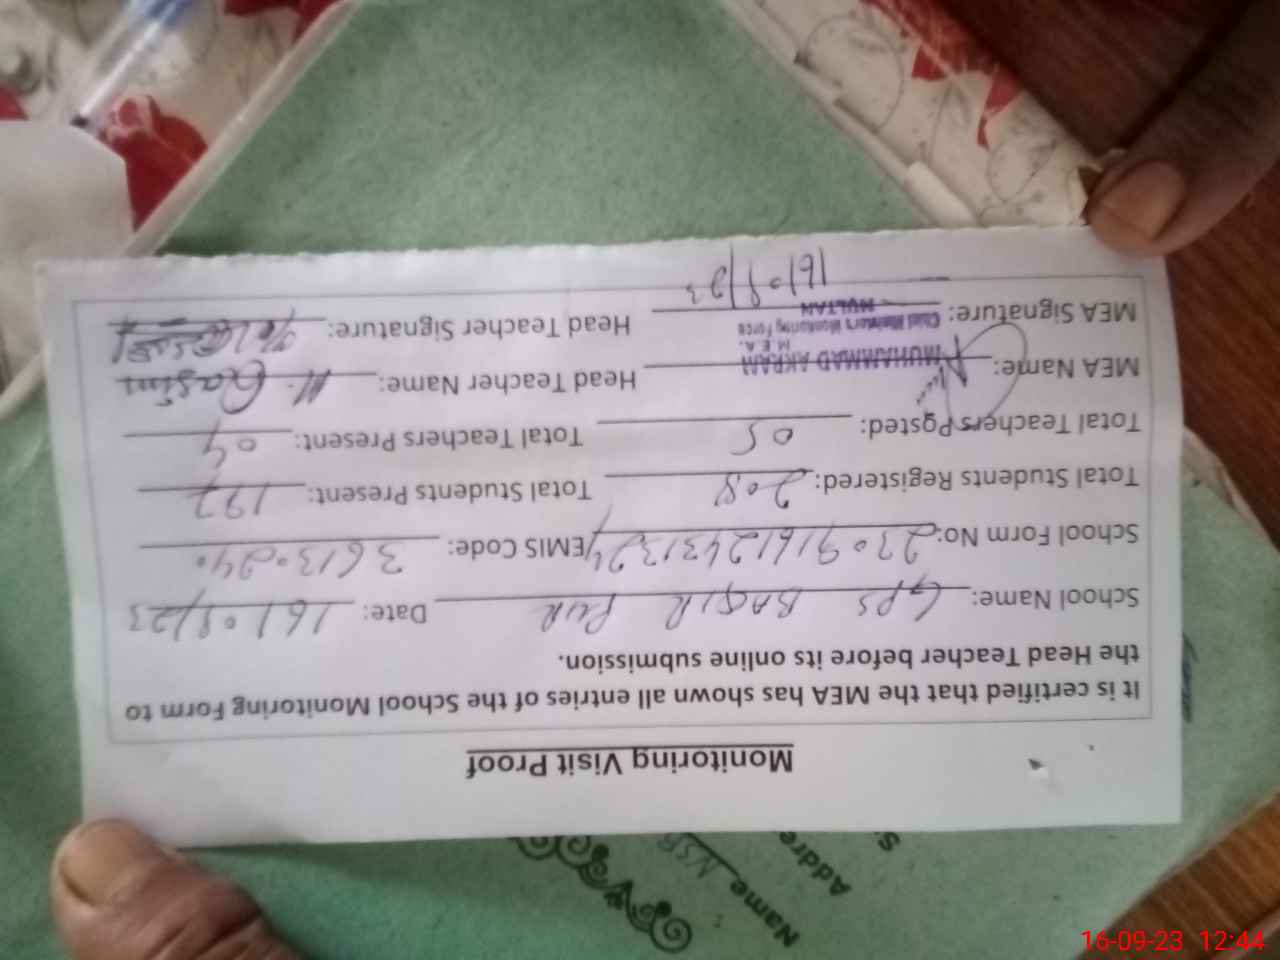 Monitoring Visit Proof
It is certified that the MEA has shown all entries of the School Monitoring Form to
the Head Teacher before its online submission.
School Name: GPS BAQIR PUR Date: 16/09/23
School Form No: 23091612431324 EMIS Code: 36130240
Total Students Registered: 208 Total Students Present: 197
Total Teachers Posted: 05 Total Teachers Present: 04
MEA Name: MUHAMMAD AKRAM Head Teacher Name: M. Qasim
M.E.A.
Chief Ministers Monitoring Force
MULTAN
MEA Signature: Head Teacher Signature:
16/09/23
Name NSB
Addre
S.
16-09-23 12:44